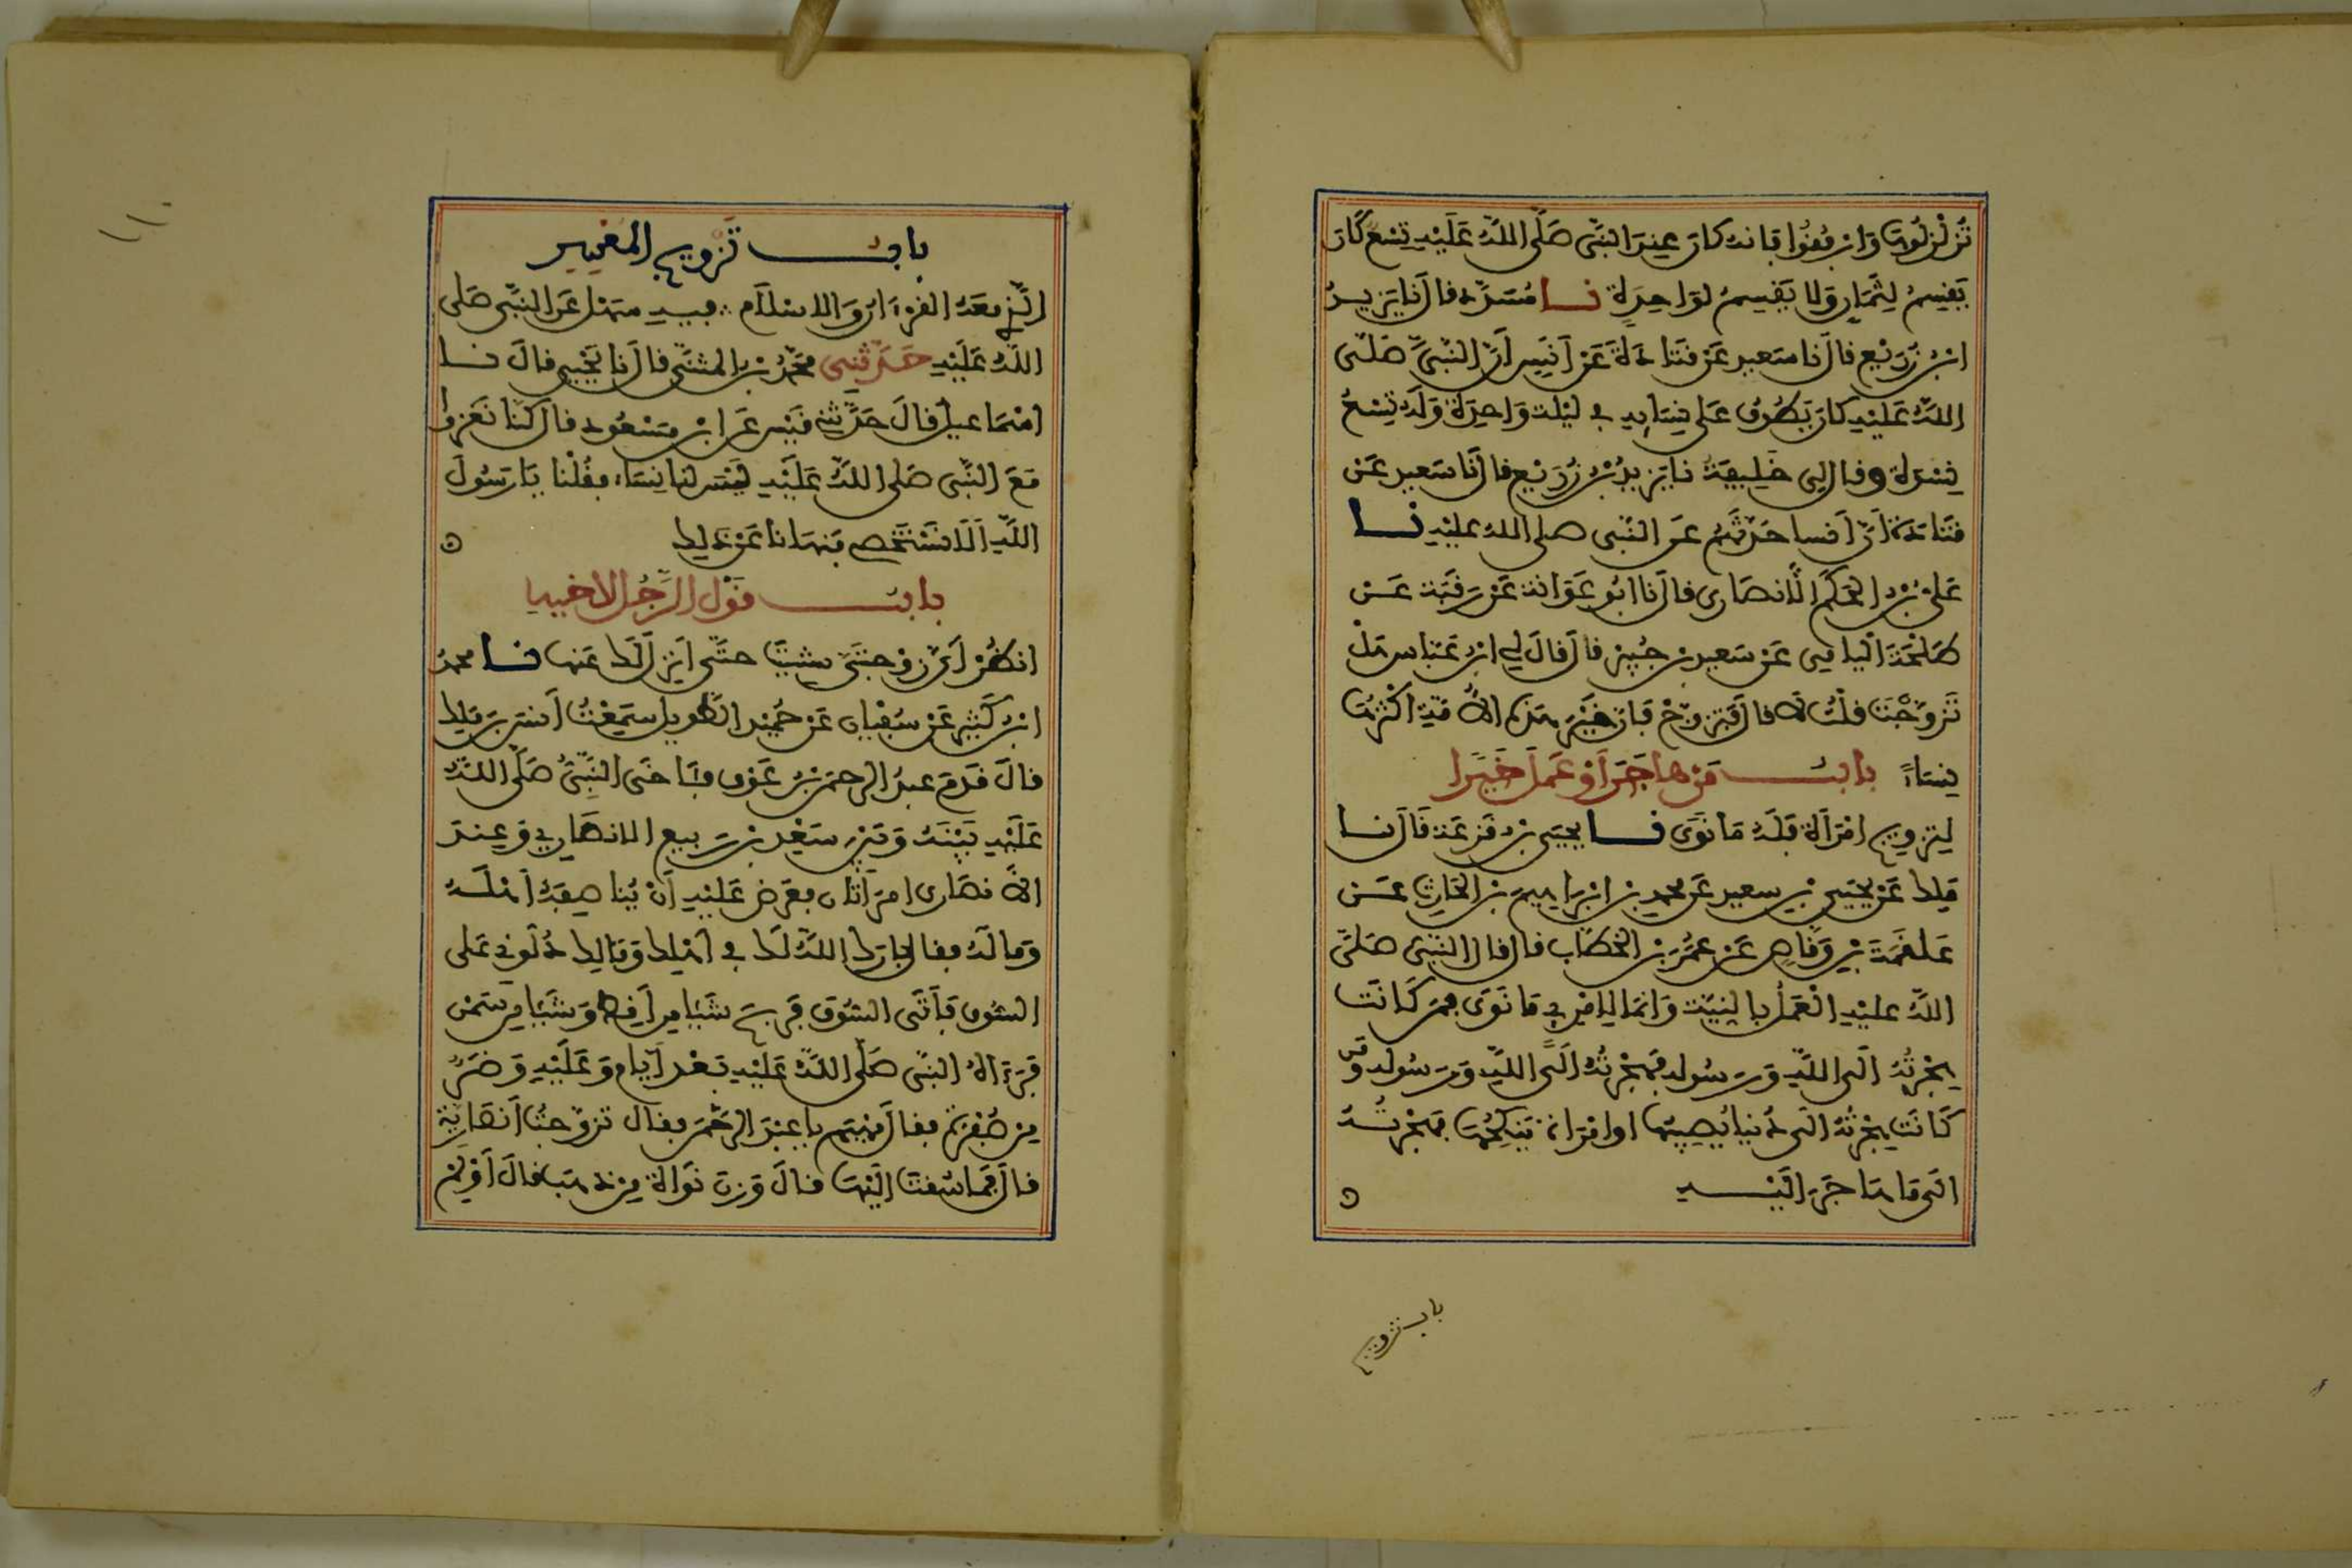 تزلزلوها وارفقوا فانه كان عند النبى صلى الله عليه تسع كان
يقسم لثمان ولا يقسم لواحدة نا مسدد قال نا يزيد
ابن زريع قال نا سعيد عن قتادة عن انس ان النبى صلى
الله عليه كان يطوف على نسايه في ليلة واحدة وله تسع
نسوة وقال لى خليفة نا يزيد بن زريع قال نا سعيد عن
قتادة ان انسا حدثهم عن النبى صلى الله عليه نا
على بن الحكم الانصارى قال نا ابو عوانة عن رقبة عن
طلحة اليامى عن سعيد بن جبير قال قال لي ابن عباس هل
تزوجت قلت لا قال فتزوج فان خير هذه الامة اكثرها
نساء باب من هاجر او عمل خيرا
لتزويج امراة فله ما نوى نا يحيى بن قزعة قال نا
ملك عن يحيى بن سعيد عن محمد بن ابراهيم بن الحارث عن
علقمة بن وقاص عن عمر بن الخطاب قال قال النبى صلى
الله عليه العمل بالنية وانما لامرئ ما نوى فمن كانت
هجرته الى الله ورسوله فهجرته الى الله ورسوله ومن
كانت هجرته الى دنيا يصيبها او امراة ينكحها فهجرته
الى ما هاجر اليه
باب تزويج
١١٠
باب تزويج المعسر
الذي معه القرءان والاسلام فيه سهل عن النبى صلى
الله عليه حدثني محمد بن المثنى قال نا يحيى قال نا
اسماعيل قال حدثني قيس عن ابن مسعود قال كنا نغزوا
مع النبى صلى الله عليه ليس لنا نساء فقلنا يا رسول
الله الا نستخصى فنهانا عن ذلك
باب قول الرجل لاخيه
انظر اى زوجتى شيت حتى انزل لك عنها نا محمد
ابن كثير عن سفيان عن حميد الطويل سمعت انس بن ملك
قال قدم عبد الرحمن بن عوف فئاخى النبى صلى الله
عليه بينه وبين سعد بن ربيع الانصاري وعند
الانصارى امراتان فعرض عليه ان يناصفه اهله
وماله فقال بارك الله لك في اهلك ومالك دلوني على
السوق فاتى السوق فربح شيئا من اقط وشيئا من سمن
فرءاه النبى صلى الله عليه بعد ايام وعليه وضر
من صفرة فقال مهيم يا عبد الرحمن فقال تزوجت انصارية
قال فما سقت اليها قال وزن نواة من ذهب قال اولم